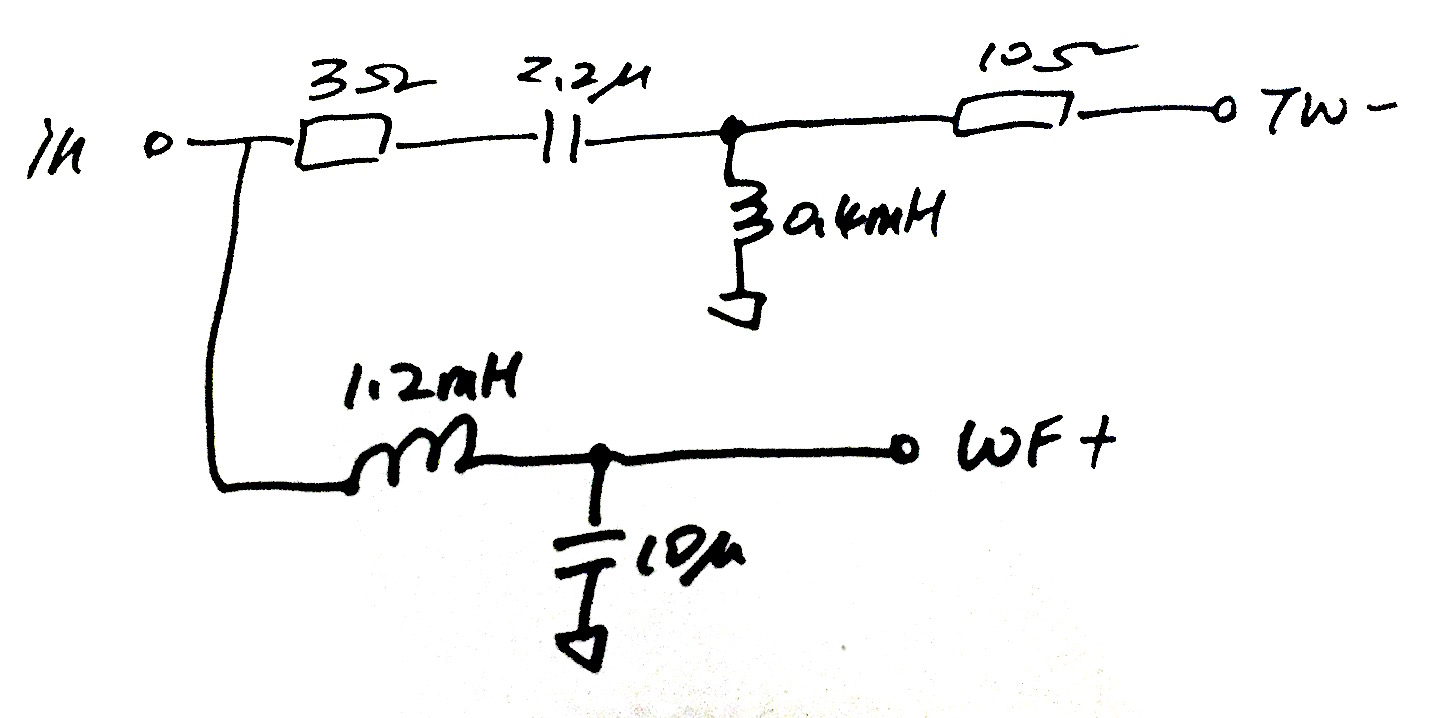 3Ω 2.2μ 10Ω
IN TW-
0.4mH
1.2mH
WF+
10μ